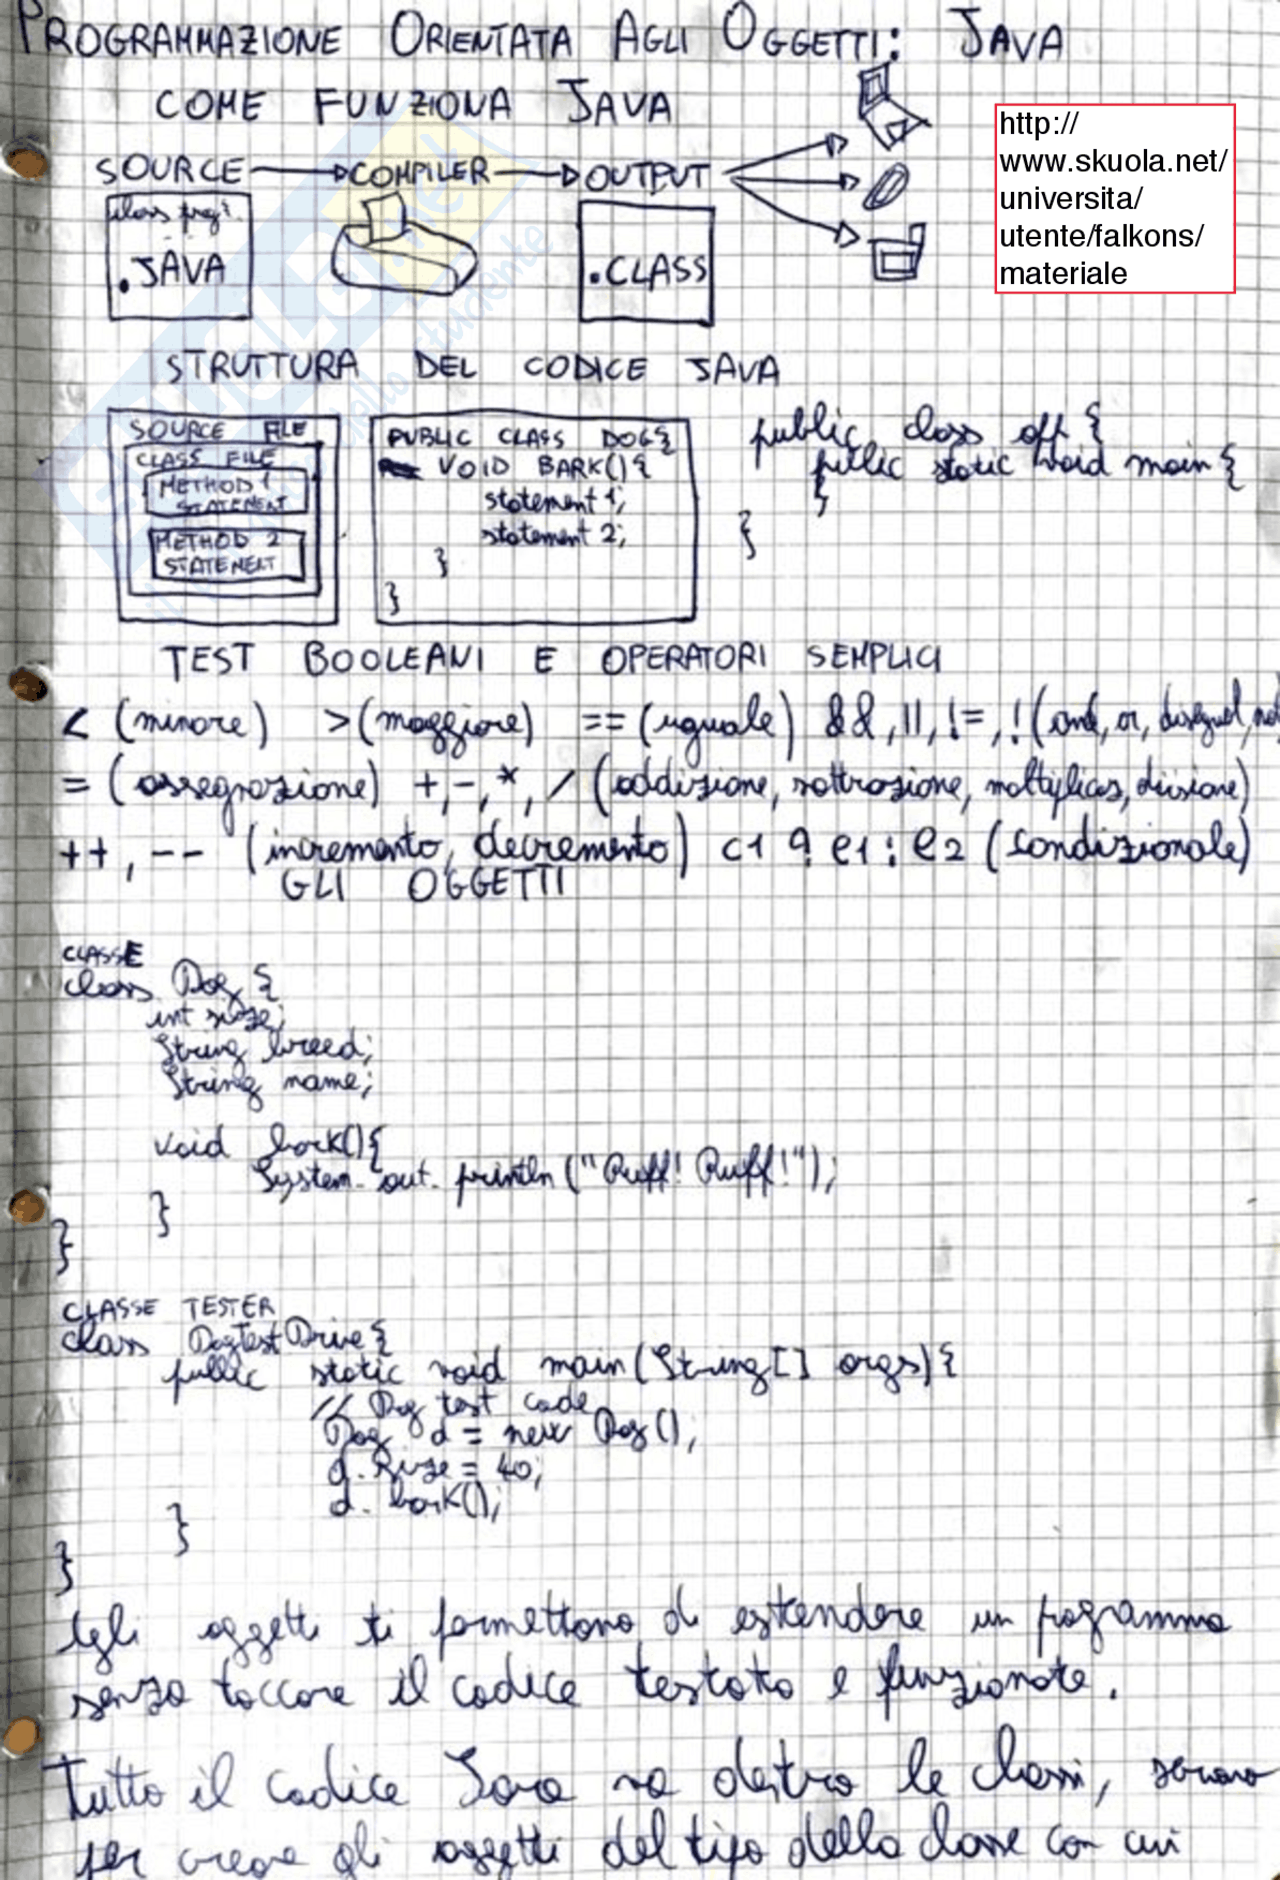 PROGRAMMAZIONE ORIENTATA AGLI OGGETTI: JAVA
COME FUNZIONA JAVA
http://
www.skuola.net/
universita/
utente/falkons/
materiale
SOURCE COMPILER OUTPUT
class
.JAVA
.CLASS
STRUTTURA DEL CODICE JAVA
SOURCE FILE
CLASS FILE
METHOD 1
STATEMENT
METHOD 2
STATEMENT
PUBLIC CLASS DOG{
VOID BARK(){
statement 1;
statement 2;
}
}
public class off {
public static void main {
}
}
TEST BOOLEANI E OPERATORI SEMPLICI
< (minore) > (maggiore) == (uguale) &&, ||, !=, ! (and, or, disegual, not
= (assegnazione) +, -, *, / (addizione, sottrazione, moltiplicaz, divisione)
++, -- (incremento, decremento) c1 ? e1 : e2 (condizionale)
GLI OGGETTI
CLASSE
class Dog {
int size;
String breed;
String name;
void bark(){
System.out.println("Ruff! Ruff!");
}
}
CLASSE TESTER
class DogTestDrive {
public static void main(String[] args){
// Dog test code
Dog d = new Dog();
d.Size = 40;
d.bark();
}
}
oggetti ti permettono di estendere un programma
senza toccare il codice testato e funzionate.
Tutto il codice Java va dentro le classi, servono
per creare gli oggetti del tipo della classe con cui